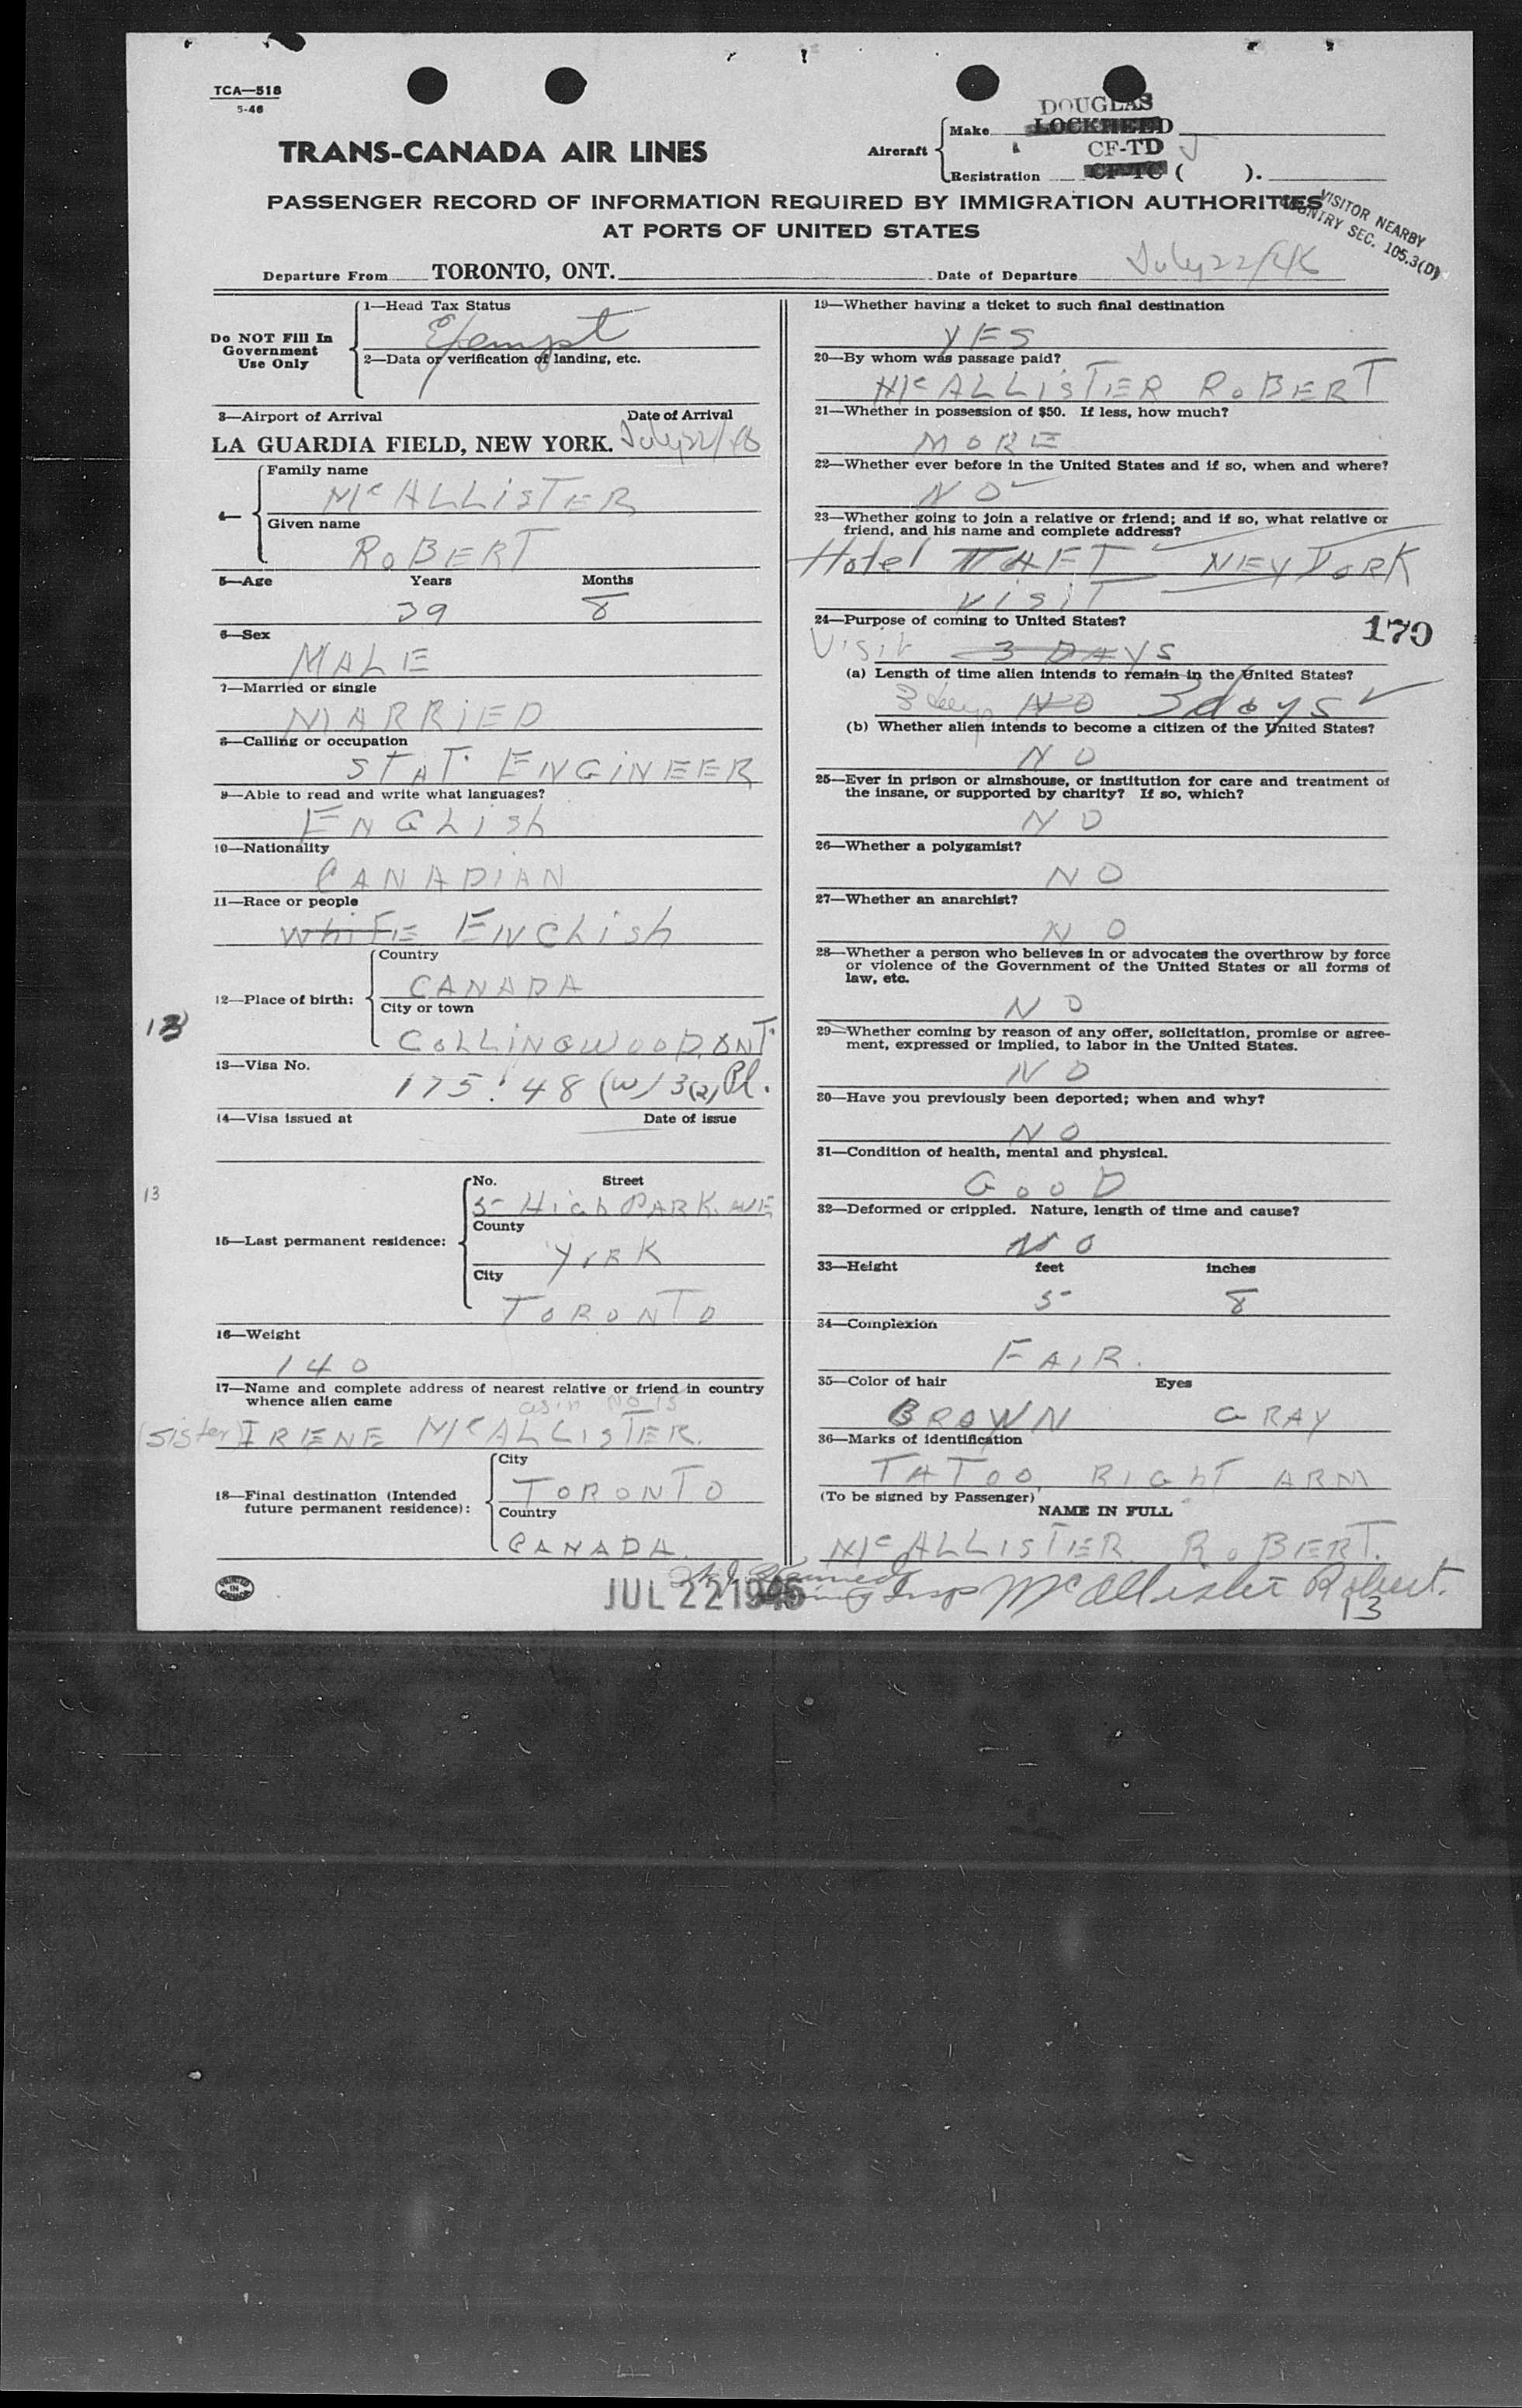 TCA—518
5-46
TRANS-CANADA AIR LINES
DOUGLAS
Aircraft
Make LOCKHEED
CF-TD J
Registration CF-TC ( ).
PASSENGER RECORD OF INFORMATION REQUIRED BY IMMIGRATION AUTHORITIES
AT PORTS OF UNITED STATES
VISITOR NEARBY
COUNTRY SEC. 105.3(D)
Departure From TORONTO, ONT. Date of Departure July 22/46
Do NOT Fill In
Government
Use Only
1—Head Tax Status
Exempt
2—Data or verification of landing, etc.
3—Airport of Arrival Date of Arrival
LA GUARDIA FIELD, NEW YORK. July 22/46
4—
Family name
McALLiSTER
Given name
RoBERT
5—Age Years Months
39 8
6—Sex
MALE
7—Married or single
MARRiED
8—Calling or occupation
STAT. ENGiNEER
9—Able to read and write what languages?
ENGLish
10—Nationality
CANADIAN
11—Race or people
whiTE ENGLish
12—Place of birth:
Country
CANADA
City or town
COLLiNGWOOD, ONT.
13—Visa No.
175.'48 (W) 3(2) Pl.
14—Visa issued at Date of issue
13
15—Last permanent residence:
No. Street
5- High PARK. AVE
County
YORK
City
TORONTO
16—Weight
140
17—Name and complete address of nearest relative or friend in country
whence alien came
as in No 15
(sister) IRENE McALLISTER.
18—Final destination (Intended
future permanent residence):
City
TORONTO
Country
CANADA.
PRINTED
IN
CANADA
JUL 22 1946
19—Whether having a ticket to such final destination
YES
20—By whom was passage paid?
McALLiSTER RoBERT
21—Whether in possession of $50. If less, how much?
MORE
22—Whether ever before in the United States and if so, when and where?
NO
23—Whether going to join a relative or friend; and if so, what relative or
friend, and his name and complete address?
Hotel TAFT NEW YORK
VisiT
24—Purpose of coming to United States?
179
Visit 3 DAYS
(a) Length of time alien intends to remain in the United States?
3 days NO 3 days
(b) Whether alien intends to become a citizen of the United States?
NO
25—Ever in prison or almshouse, or institution for care and treatment of
the insane, or supported by charity? If so, which?
NO
26—Whether a polygamist?
NO
27—Whether an anarchist?
NO
28—Whether a person who believes in or advocates the overthrow by force
or violence of the Government of the United States or all forms of
law, etc.
NO
29—Whether coming by reason of any offer, solicitation, promise or agree-
ment, expressed or implied, to labor in the United States.
NO
30—Have you previously been deported; when and why?
NO
31—Condition of health, mental and physical.
GooD
32—Deformed or crippled. Nature, length of time and cause?
NO
33—Height feet inches
5- 8
34—Complexion
FAIR.
35—Color of hair Eyes
BROWN GRAY
36—Marks of identification
TATOO RIGhT ARM
(To be signed by Passenger)
NAME IN FULL
McALLISTER RoBERT.
McAllister Robert.
13